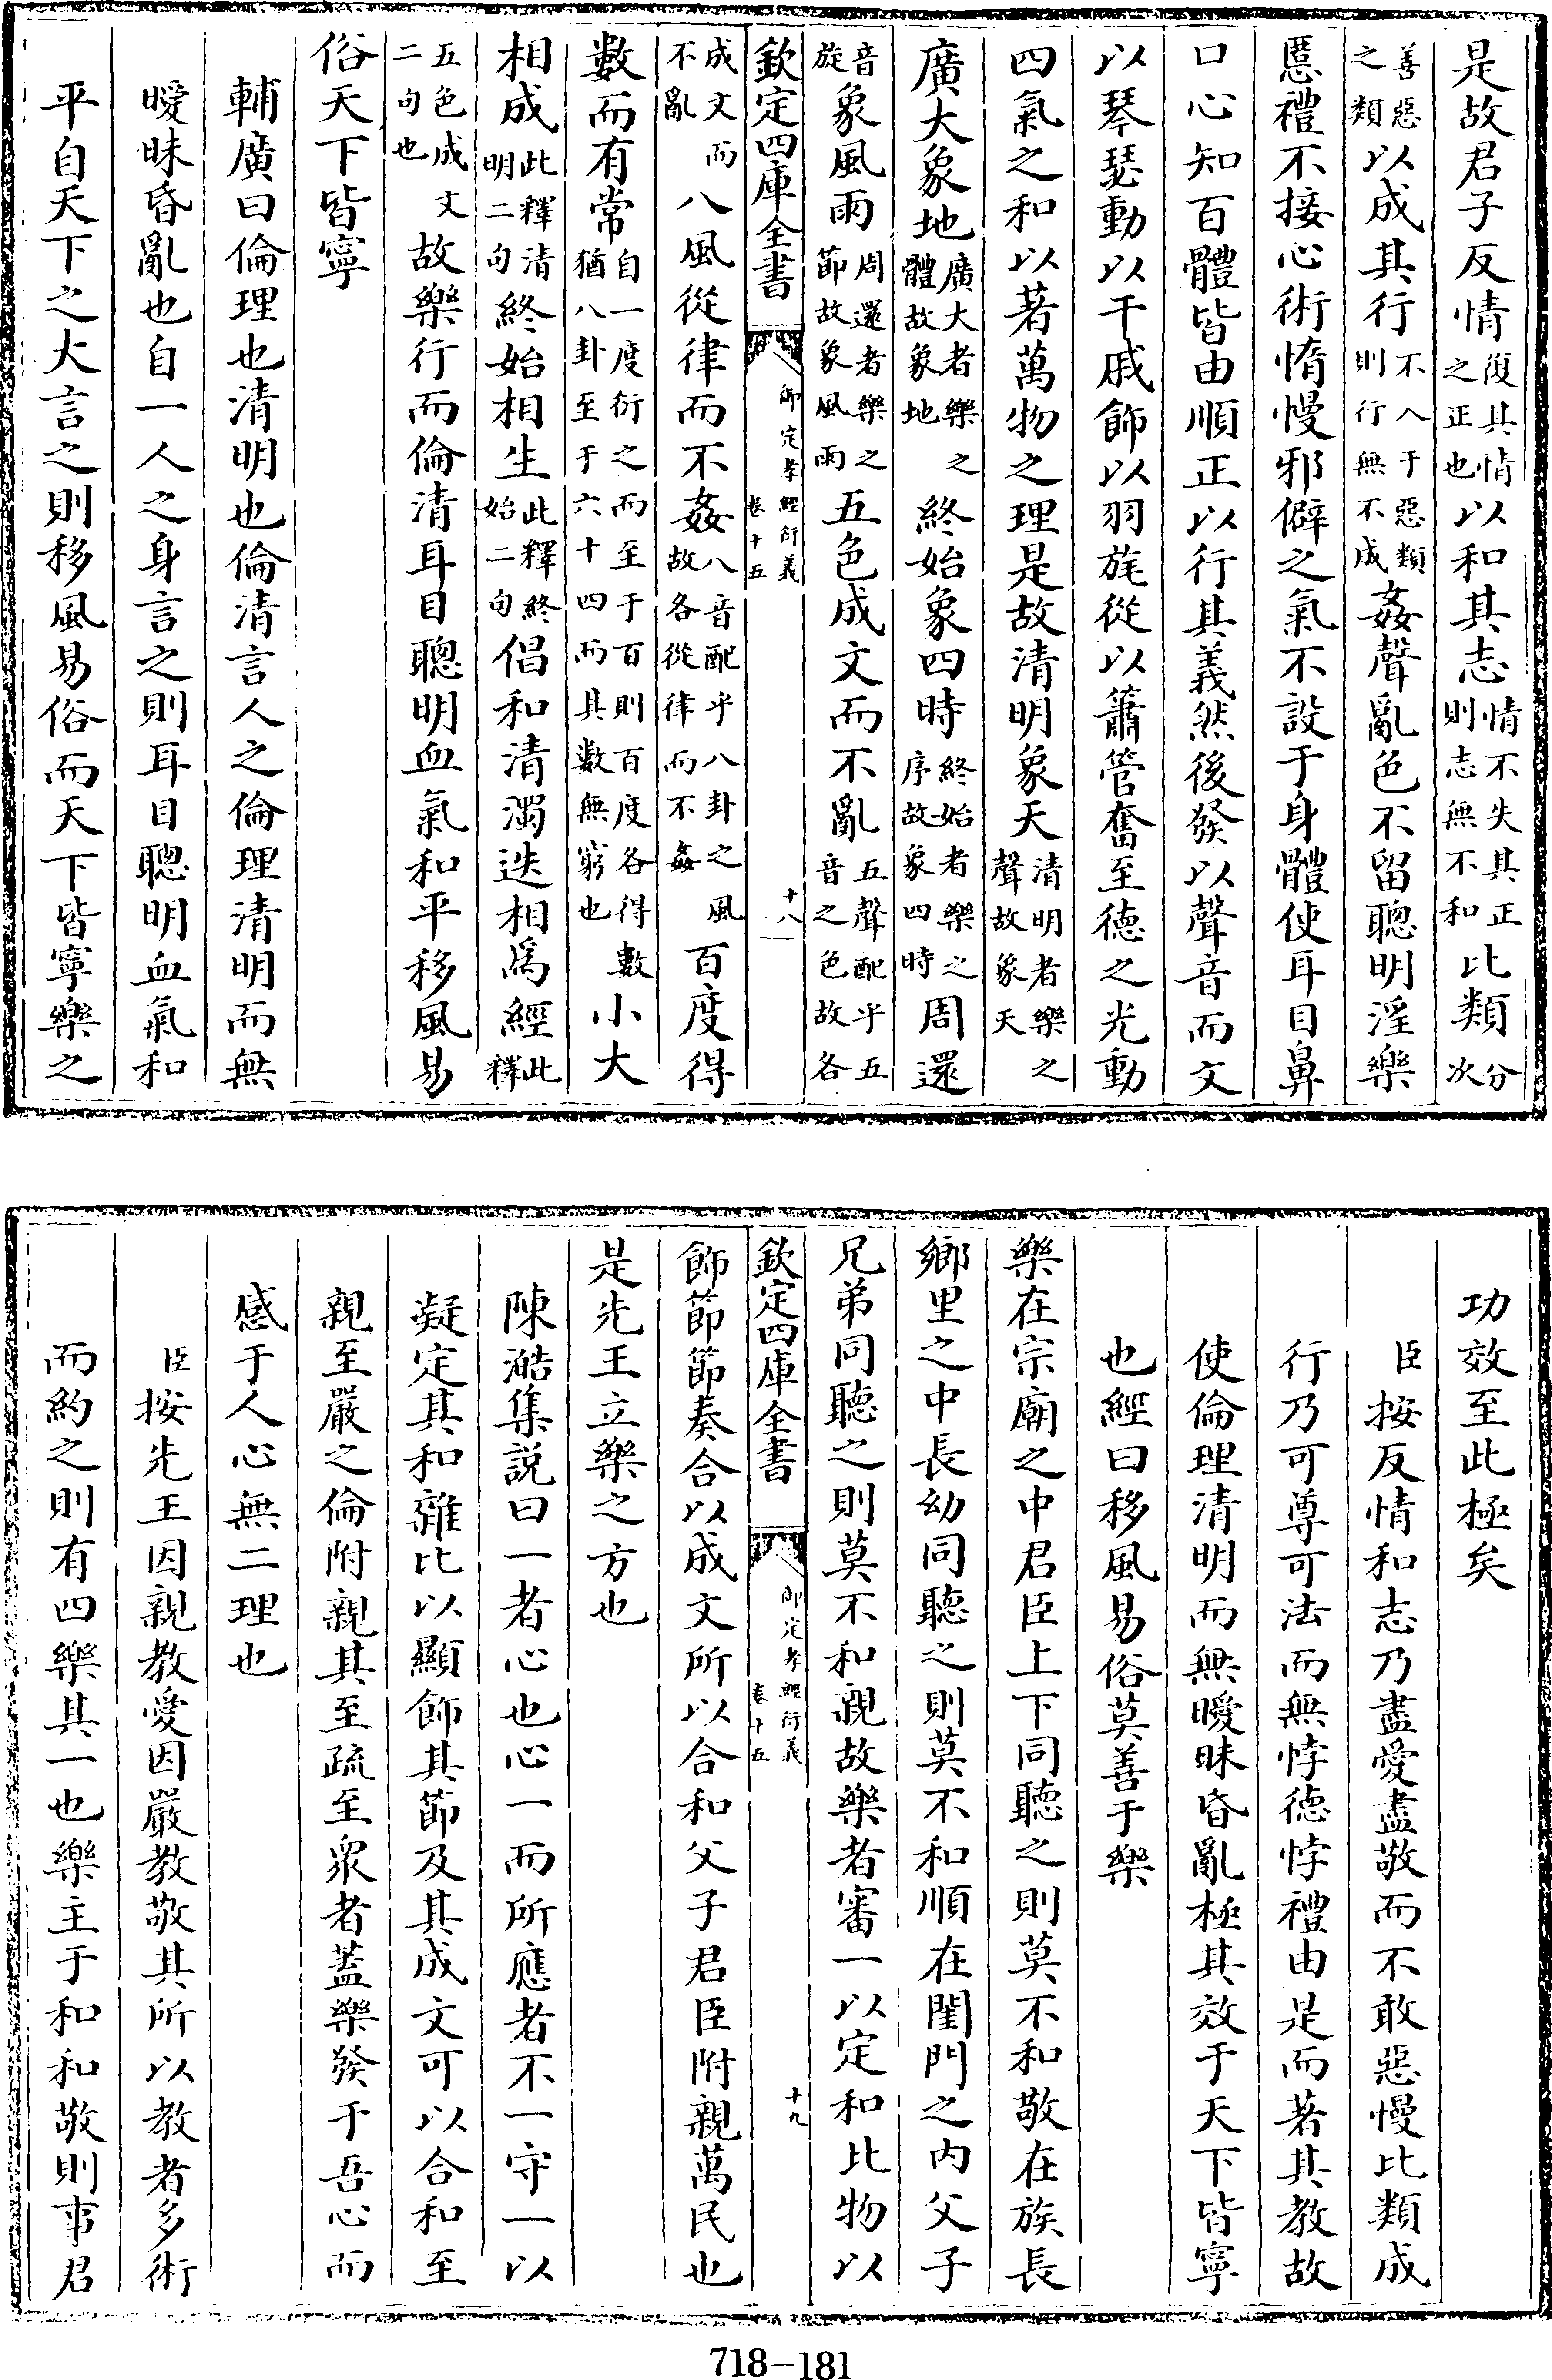 是故君子反情復其情之正也以和其志情不失其正則志無不和比類分次
善惡之類以成其行不入于惡類則行無不成姦聲亂色不留聰明淫樂
慝禮不接心術惰慢邪僻之氣不設于身體使耳目鼻
口心知百體皆由順正以行其義然後發以聲音而文
以琴瑟動以干戚飾以羽旄從以簫管奮至德之光動
四氣之和以著萬物之理是故清明象天清明者樂之聲故象天
廣大象地廣大者樂之體故象地終始象四時終始者樂之序故象四時周還
音旋象風雨周還者樂之節故象風雨五色成文而不亂五聲配乎五音之色故各
欽定四庫全書 御定孝經衍義 卷十五 十八
成文而不亂八風從律而不姦八音配乎八卦之風故各從律而不姦百度得
數而有常自一度衍之而至于百則百度各得數猶八卦至于六十四而具數無窮也小大
相成此釋清明二句終始相生此釋終始二句倡和清濁迭相為經此釋
五色成文二句也故樂行而倫清耳目聰明血氣和平移風易
俗天下皆寧
輔廣曰倫理也清明也倫清言人之倫理清明而無
曖昧昏亂也自一人之身言之則耳目聰明血氣和
平自天下之大言之則移風易俗而天下皆寧樂之
功效至此極矣
臣按反情和志乃盡愛盡敬而不敢惡慢比類成
行乃可尊可法而無悖德悖禮由是而著其教故
使倫理清明而無曖昧昏亂極其效于天下皆寧
也經曰移風易俗莫善于樂
樂在宗廟之中君臣上下同聽之則莫不和敬在族長
鄉里之中長幼同聽之則莫不和順在閨門之內父子
兄弟同聽之則莫不和親故樂者審一以定和比物以
欽定四庫全書 御定孝經衍義 卷十五 十九
飾節節奏合以成文所以合和父子君臣附親萬民也
是先王立樂之方也
陳澔集說曰一者心也心一而所應者不一守一以
凝定其和雜比以顯飾其節及其成文可以合和至
親至嚴之倫附親其至疏至衆者蓋樂發于吾心而
感于人心無二理也
臣按先王因親教愛因嚴教敬其所以教者多術
而約之則有四樂其一也樂主于和和敬則事君
718-181